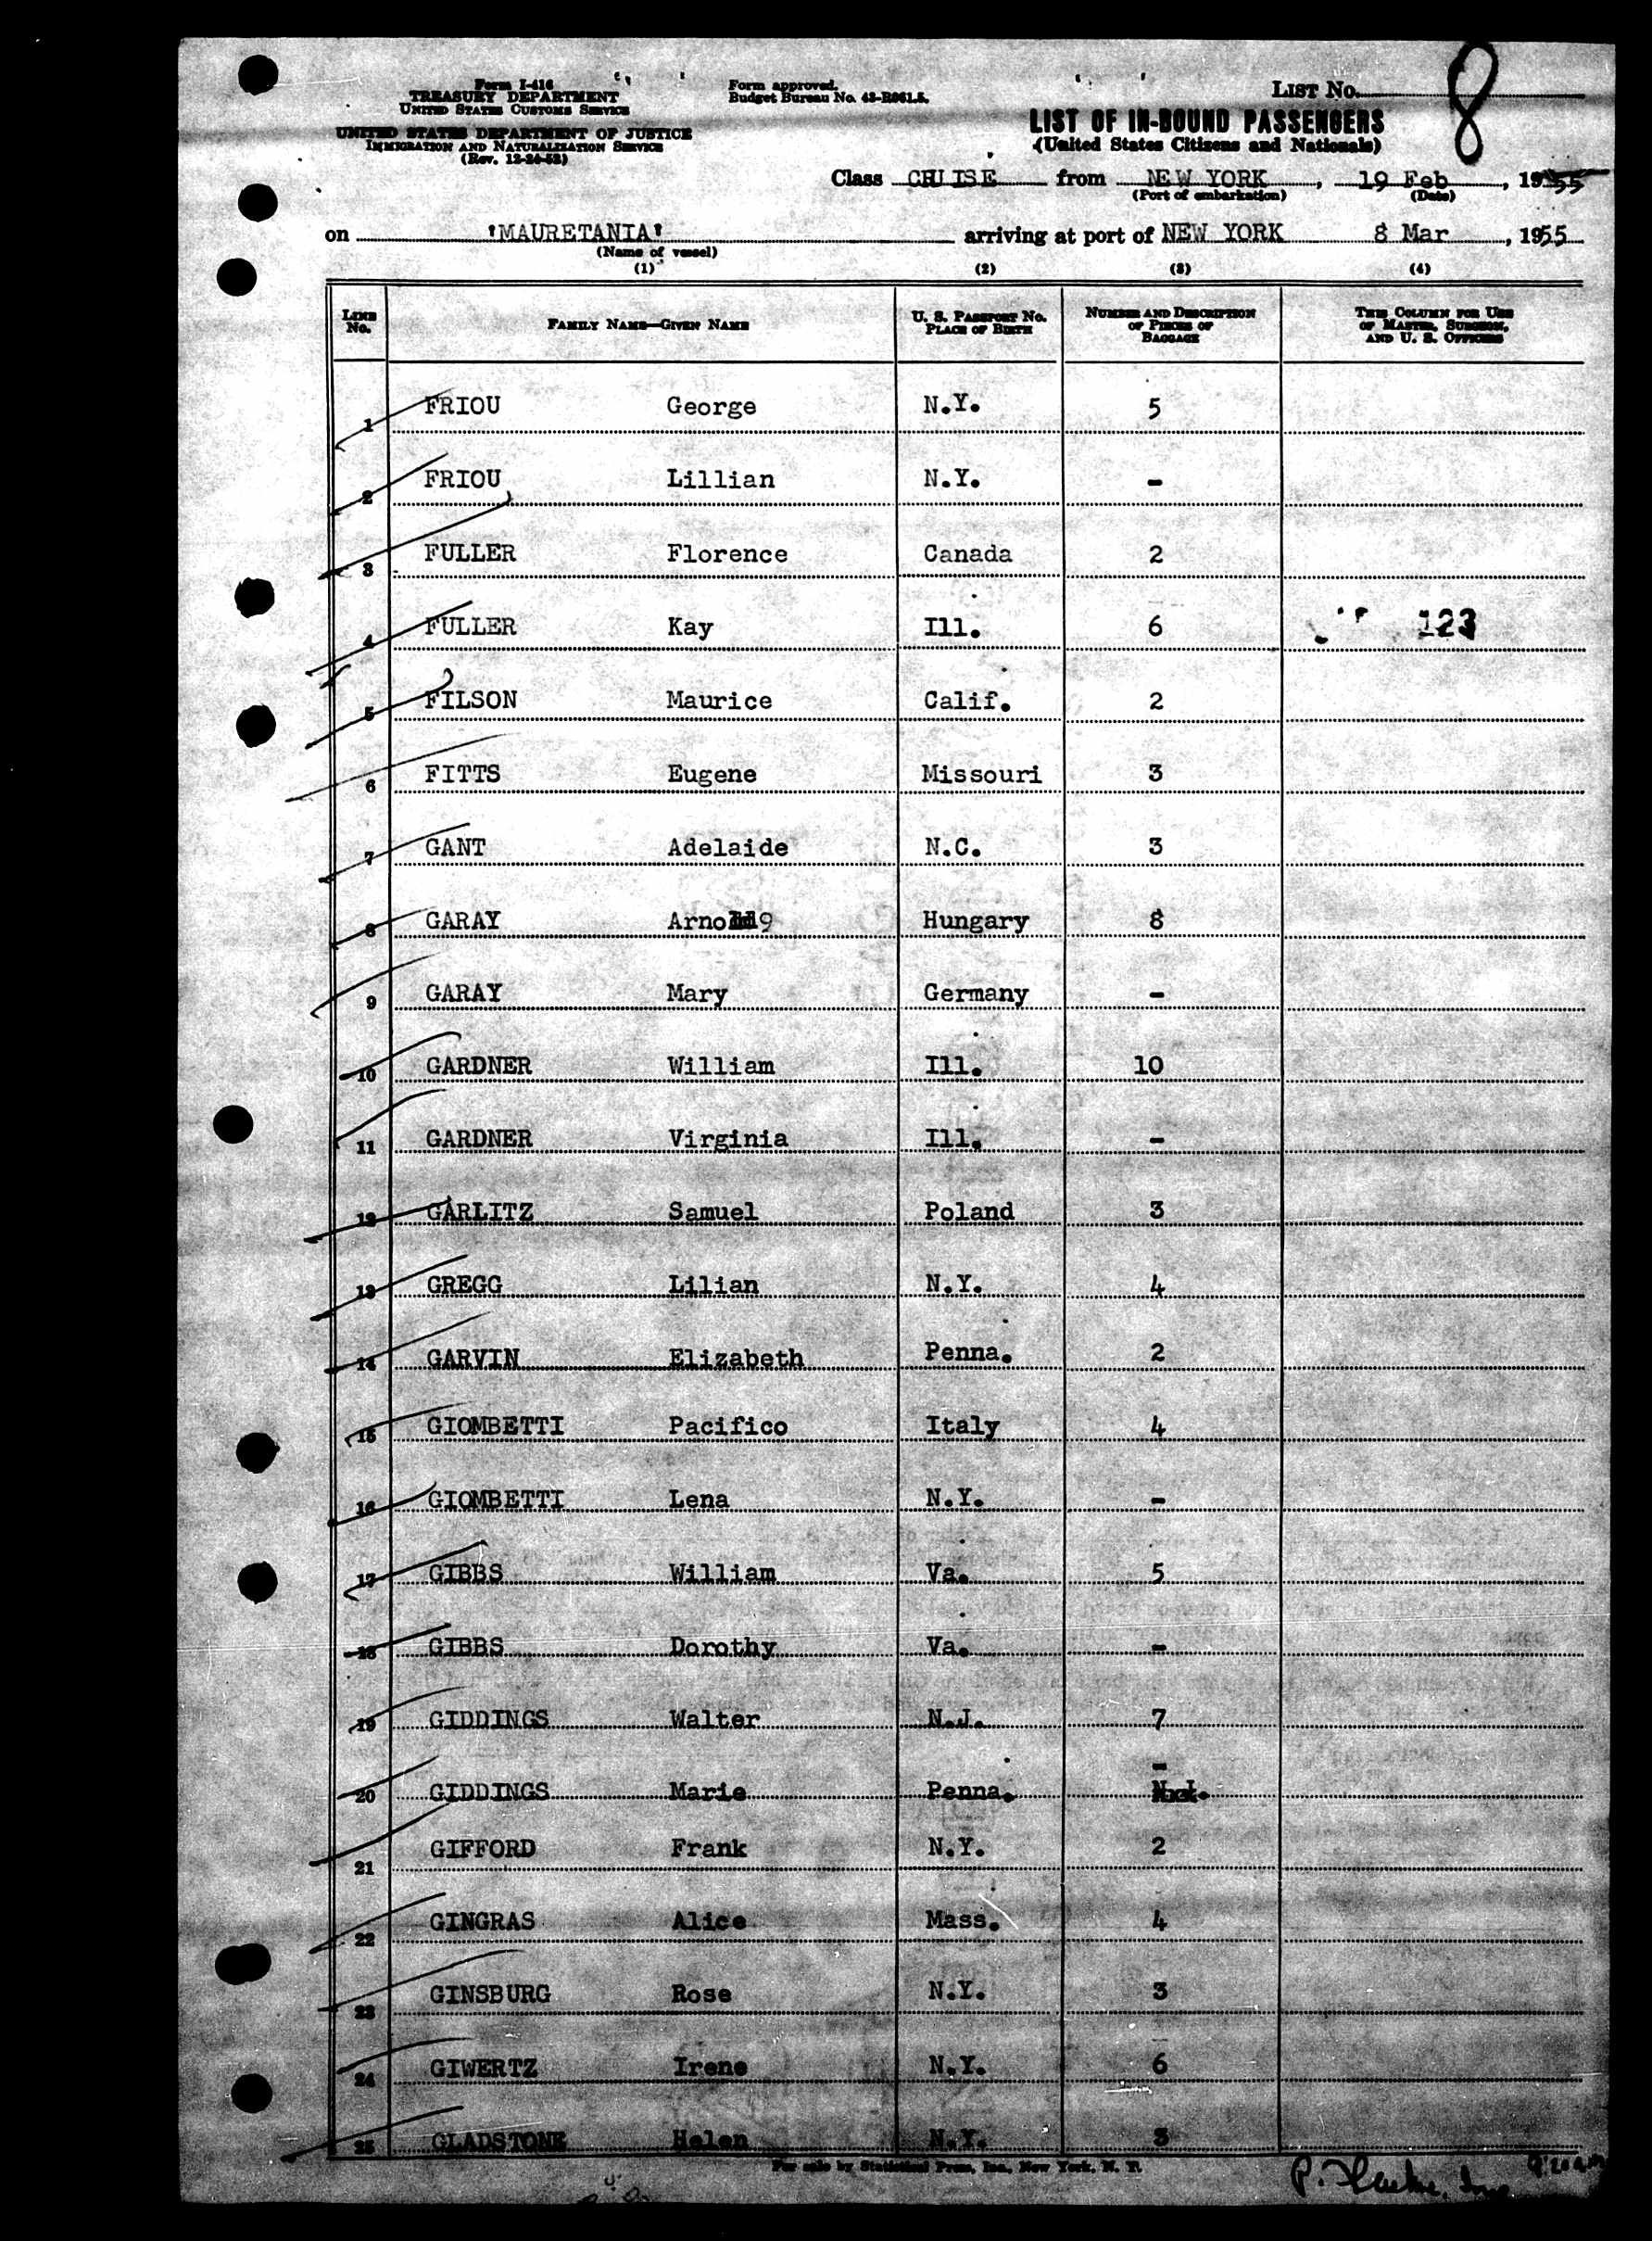 Form I-416
TREASURY DEPARTMENT
UNITED STATES CUSTOMS SERVICE
UNITED STATES DEPARTMENT OF JUSTICE
IMMIGRATION AND NATURALIZATION SERVICE
(Rev. 12-24-52)
Form approved.
Budget Bureau No. 43-R061.5.
LIST No. 8
LIST OF IN-BOUND PASSENGERS
(United States Citizens and Nationals)
Class CRUISE from NEW YORK, 19 Feb, 1955
(Port of embarkation) (Date)
on 'MAURETANIA' arriving at port of NEW YORK 8 Mar, 1955
(Name of vessel)
(1) (2) (3) (4)
LINE No. FAMILY NAME—GIVEN NAME U. S. PASSPORT No. PLACE OF BIRTH NUMBER AND DESCRIPTION OF PIECES OF BAGGAGE THIS COLUMN FOR USE OF MASTER, SURGEON, AND U. S. OFFICERS
1 FRIOU George N.Y. 5
2 FRIOU Lillian N.Y. -
3 FULLER Florence Canada 2
4 FULLER Kay Ill. 6 123
5 FILSON Maurice Calif. 2
6 FITTS Eugene Missouri 3
7 GANT Adelaide N.C. 3
8 GARAY Arno 9 Hungary 8
9 GARAY Mary Germany -
10 GARDNER William Ill. 10
11 GARDNER Virginia Ill. -
12 GARLITZ Samuel Poland 3
13 GREGG Lilian N.Y. 4
14 GARVIN Elizabeth Penna. 2
15 GIOMBETTI Pacifico Italy 4
16 GIOMBETTI Lena N.Y. -
17 GIBBS William Va. 5
18 GIBBS Dorothy Va. -
19 GIDDINGS Walter N.J. 7
20 GIDDINGS Marie Penna. -
21 GIFFORD Frank N.Y. 2
22 GINGRAS Alice Mass. 4
23 GINSBURG Rose N.Y. 3
24 GIWERTZ Irene N.Y. 6
25 GLADSTONE Helen N.Y. 3
For sale by Statistical Press, Inc., New York, N. Y.